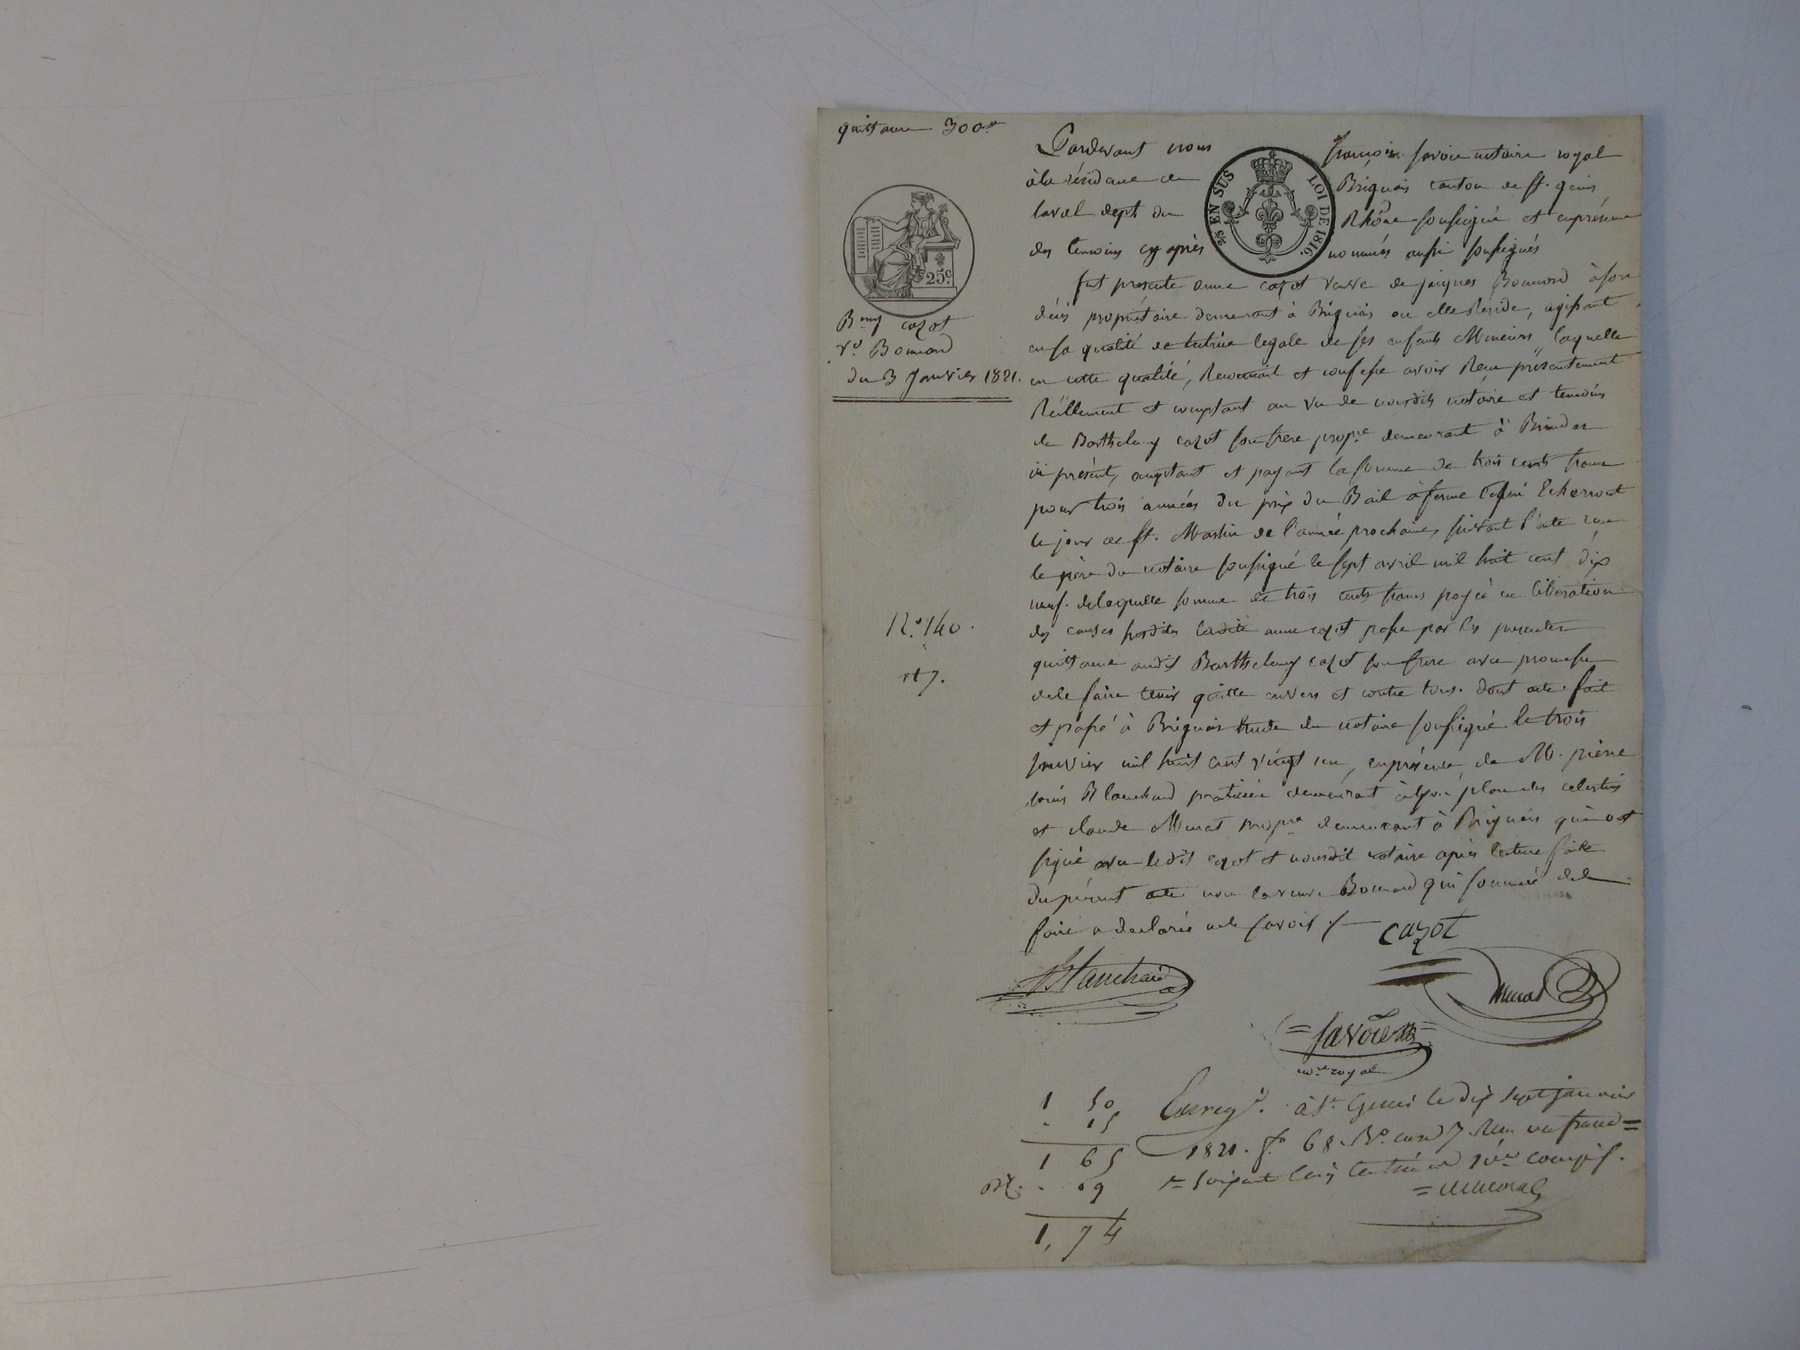 quittance 300 fr
Pardevant nous françois savoie notaire royal
à la résidence de Brignais canton de St. genis
laval dept. du Rhône soussigné et en présence
des temoins cy après nommés aussi soussignés
2/5 EN SUS LOI DE 1816.
25c.
fut presente anne cazot veuve de jacques Bonnard à son
décès propriétaire demeurant à Brignais ou elle Réside, agissant
en sa qualité de tutrice legale de ses enfants Mineurs, laquelle
en cette qualité, Reconnait et confesse avoir Reçu présentement
Réellement et comptant au vu de nousdits notaire et temoins
de Barthelemy cazot son frere propre. demeurant à Brindas
ici présent, acceptant et payant la somme de trois cents francs
pour trois années du prix du Bail à ferme Echerront
le jour de St. Martin de l'année prochaine, suivant l'acte reçu
le père du notaire soussigné le sept avril mil huit cent dix
neuf. de laquelle somme de trois cents francs payée en libération
des causes susdites ladite anne cazot passe par les presentes
quittance audit Barthelemy cazot son frere avec promesse
de le faire tenir quitte envers et contre tous. dont acte. fait
et passé à Brignais étude du notaire soussigné le trois
janvier mil huit cent vingt un, en présence de M. pierre
louis Blanchard praticien demeurant à lyon place des celestins
et claude Murat propre. demeurant à Brignais qui ont
signé avec ledit cazot et nousdit notaire après lecture faite
du présent acte non la veuve Bonnard qui sommée de le
faire a declaré ne le savoir /.
Bmy cazot
Ve Bonnard
du 3 Janvier 1821.
No. 140.
et 7.
cazot
Blanchard
Murat
Savoie
not. royal
1 50
. 15
1 65
. 09
1, 74
Enregé. à St. Genis le dix sept janvier
1821. fo 68 Vo case 7 Reçu un franc
soixante cinq centimes 10e compris.